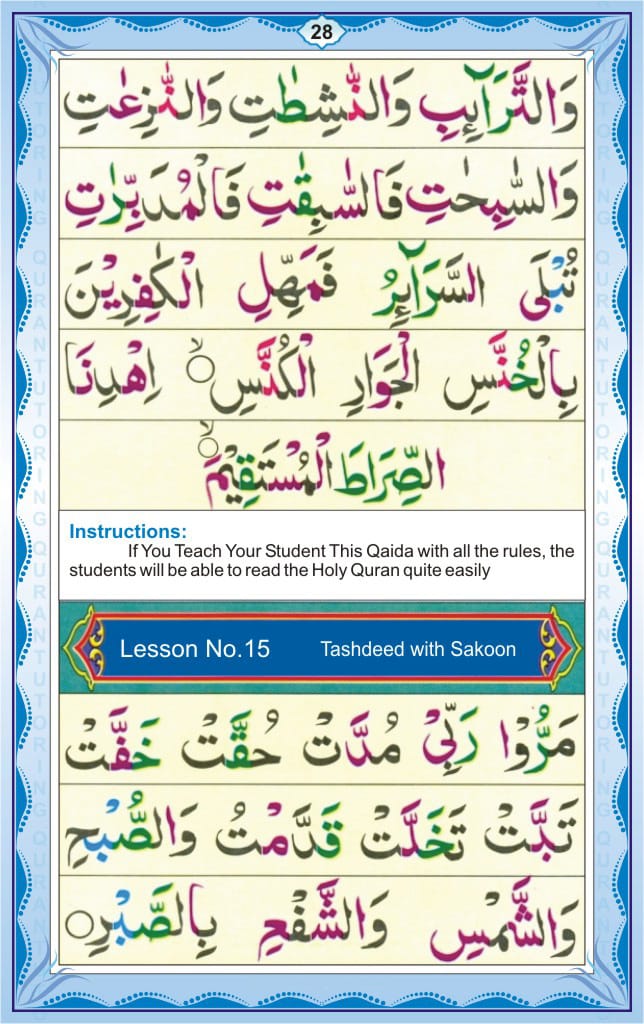 28
وَالتَّرَآئِبِ وَالنّٰشِطٰتِ وَالنّٰزِعٰتِ
وَالسّٰبِحٰتِ فَالسّٰبِقٰتِ فَالْمُدَبِّرٰتِ
تُبْلَى السَّرَآئِرُ فَمَهِّلِ الْكٰفِرِيْنَ
بِالْخُنَّسِ الْجَوَارِ الْكُنَّسِ ۙ اِهْدِنَا
الصِّرَاطَ الْمُسْتَقِيْمَ ۙ
Instructions:
If You Teach Your Student This Qaida with all the rules, the
students will be able to read the Holy Quran quite easily
Lesson No.15 Tashdeed with Sakoon
مَرُّوْا رَبِّىْ مُدَّتْ حُقَّتْ خَفَّتْ
تَبَّتْ تَخَلَّتْ قَدَّمْتُ وَالصُّبْحِ
وَالشَّمْسِ وَالشَّفْعِ بِالصَّبْرِ ۝
QURAN TUTORING QURAN TUTORING
QURAN TUTORING QURAN TUTORING